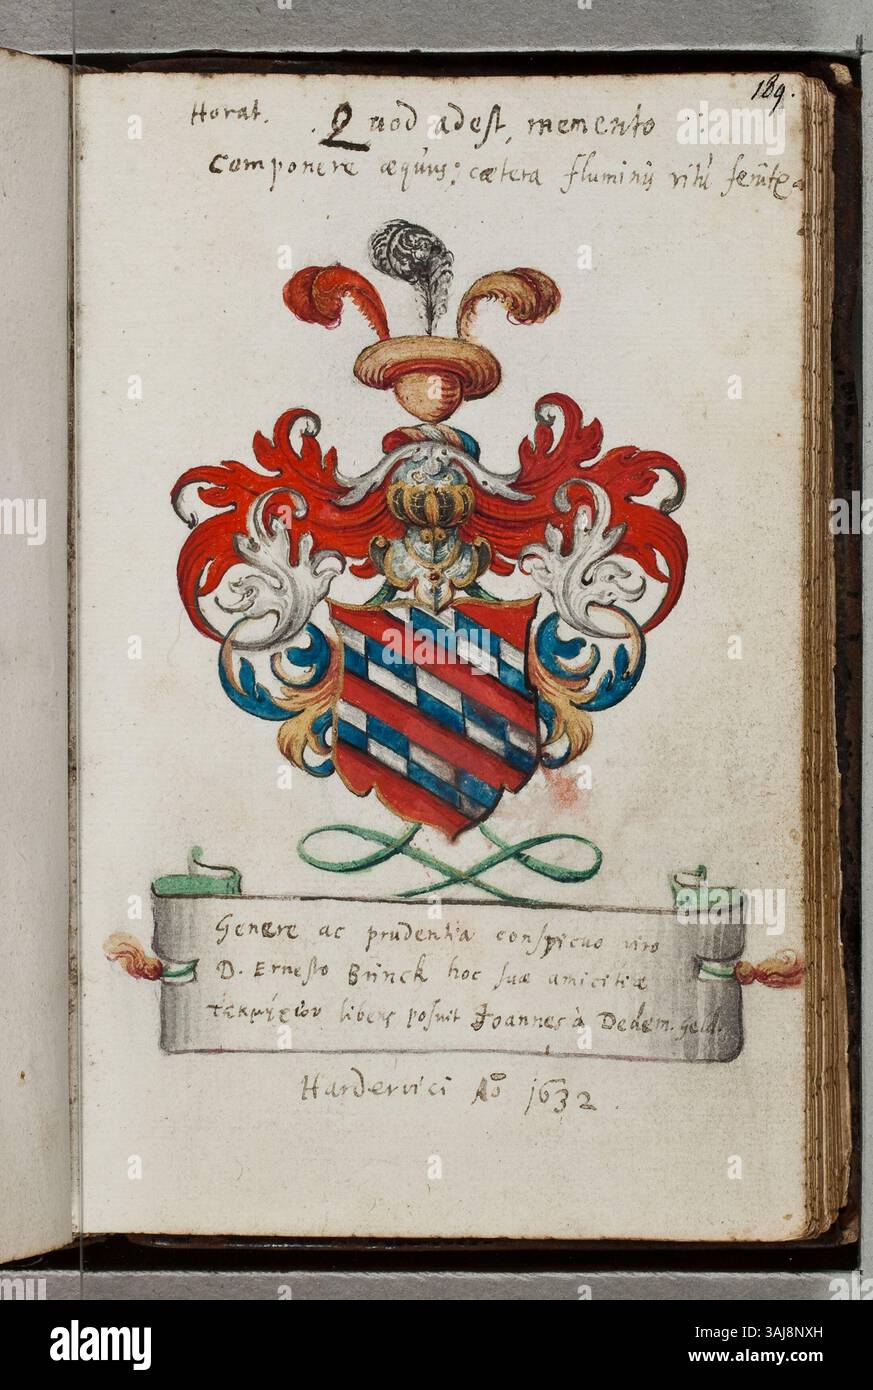 189.
Horat. Quod adest, memento
Componere æquus; cætera fluminis ritu feruntr
Genere ac prudentia conspicuo viro
D. Ernesto Brinck hoc suæ amicitiæ
τεκμήριον libens posuit Joannes à Dedem. Geld.
Hardervici Ao 1632.
alamy
Image ID: 3AJ8NXH
www.alamy.com